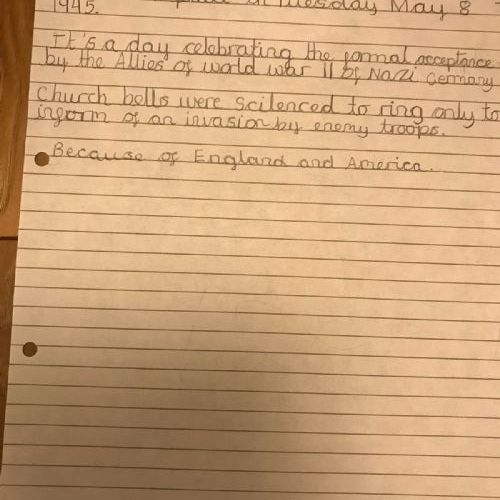 Tuesday May 8
1945.
It's a day celebrating the formal acceptance
by the Allies of world war II of Nazi Germany
Church bells were scilenced to ring only to
inform of an invasion by enemy troops.
Because of England and America.